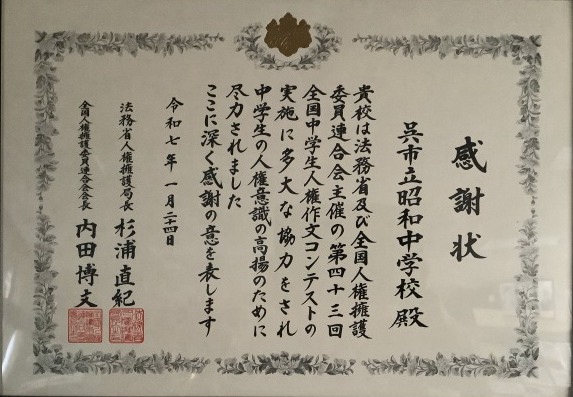 感謝状
呉市立昭和中学校殿
貴校は法務省及び全国人権擁護
委員連合会主催の第四十三回
全国中学生人権作文コンテストの
実施に多大な協力をされ
中学生の人権意識の高揚のために
尽力されました
ここに深く感謝の意を表します
令和七年一月二十四日
法務省人権擁護局長 杉浦直紀
全国人権擁護委員連合会会長 内田博文